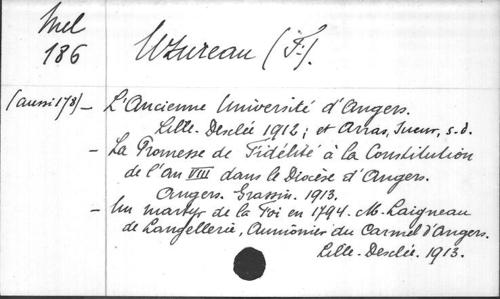 Mel
186
Uzureau (F.).
(aussi 178) – L'Ancienne Université d'Angers.
Lille. Desclée 1912; et Arras, Sueur, s.d.
– La Promesse de Fidélité à la Constitution
de l'An VIII dans le Diocèse d'Angers.
Angers. Grassin. 1913.
– Un martyr de la Foi en 1794. M. Laigneau
de Langellerie, Aumônier du Carmel d'Angers.
Lille. Desclée. 1913.